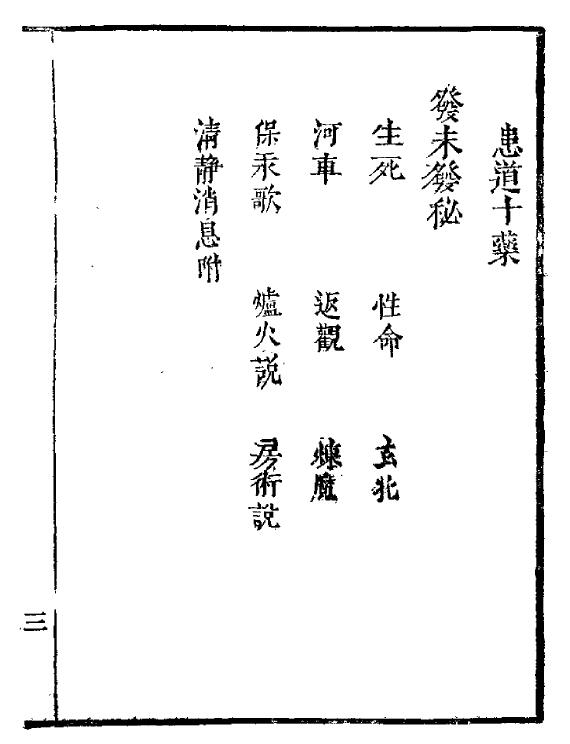 患道十藥
發未發秘
生死　性命　玄牝
河車　返觀　煉魔
保汞歌　爐火説　房術説
清静消息附
三